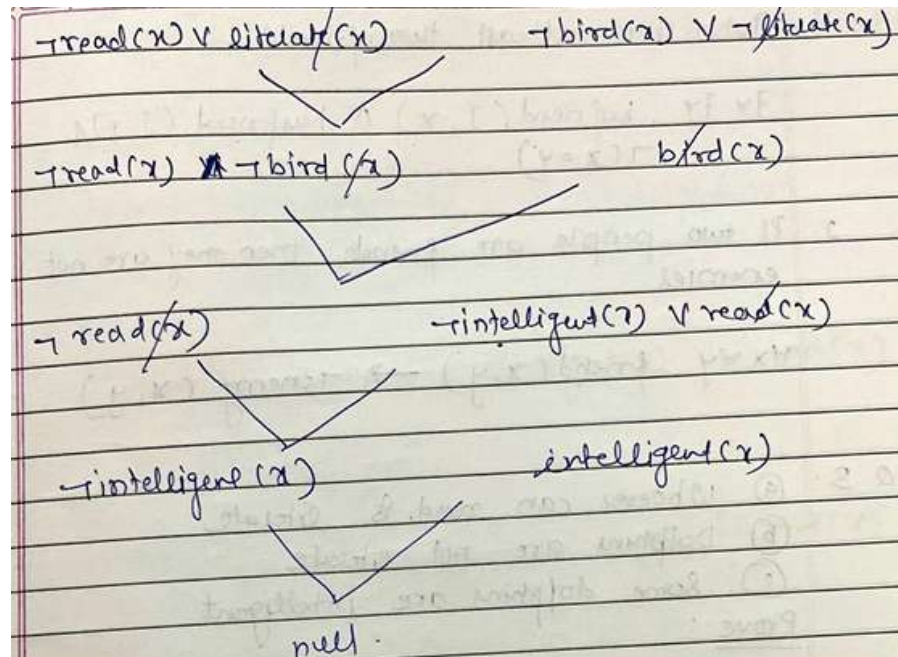 ¬read(x) V literate(x) ¬bird(x) V ¬literate(x)
¬read(x) V ¬bird(x) bird(x)
¬read(x) ¬intelligent(x) V read(x)
¬intelligent(x) intelligent(x)
null.